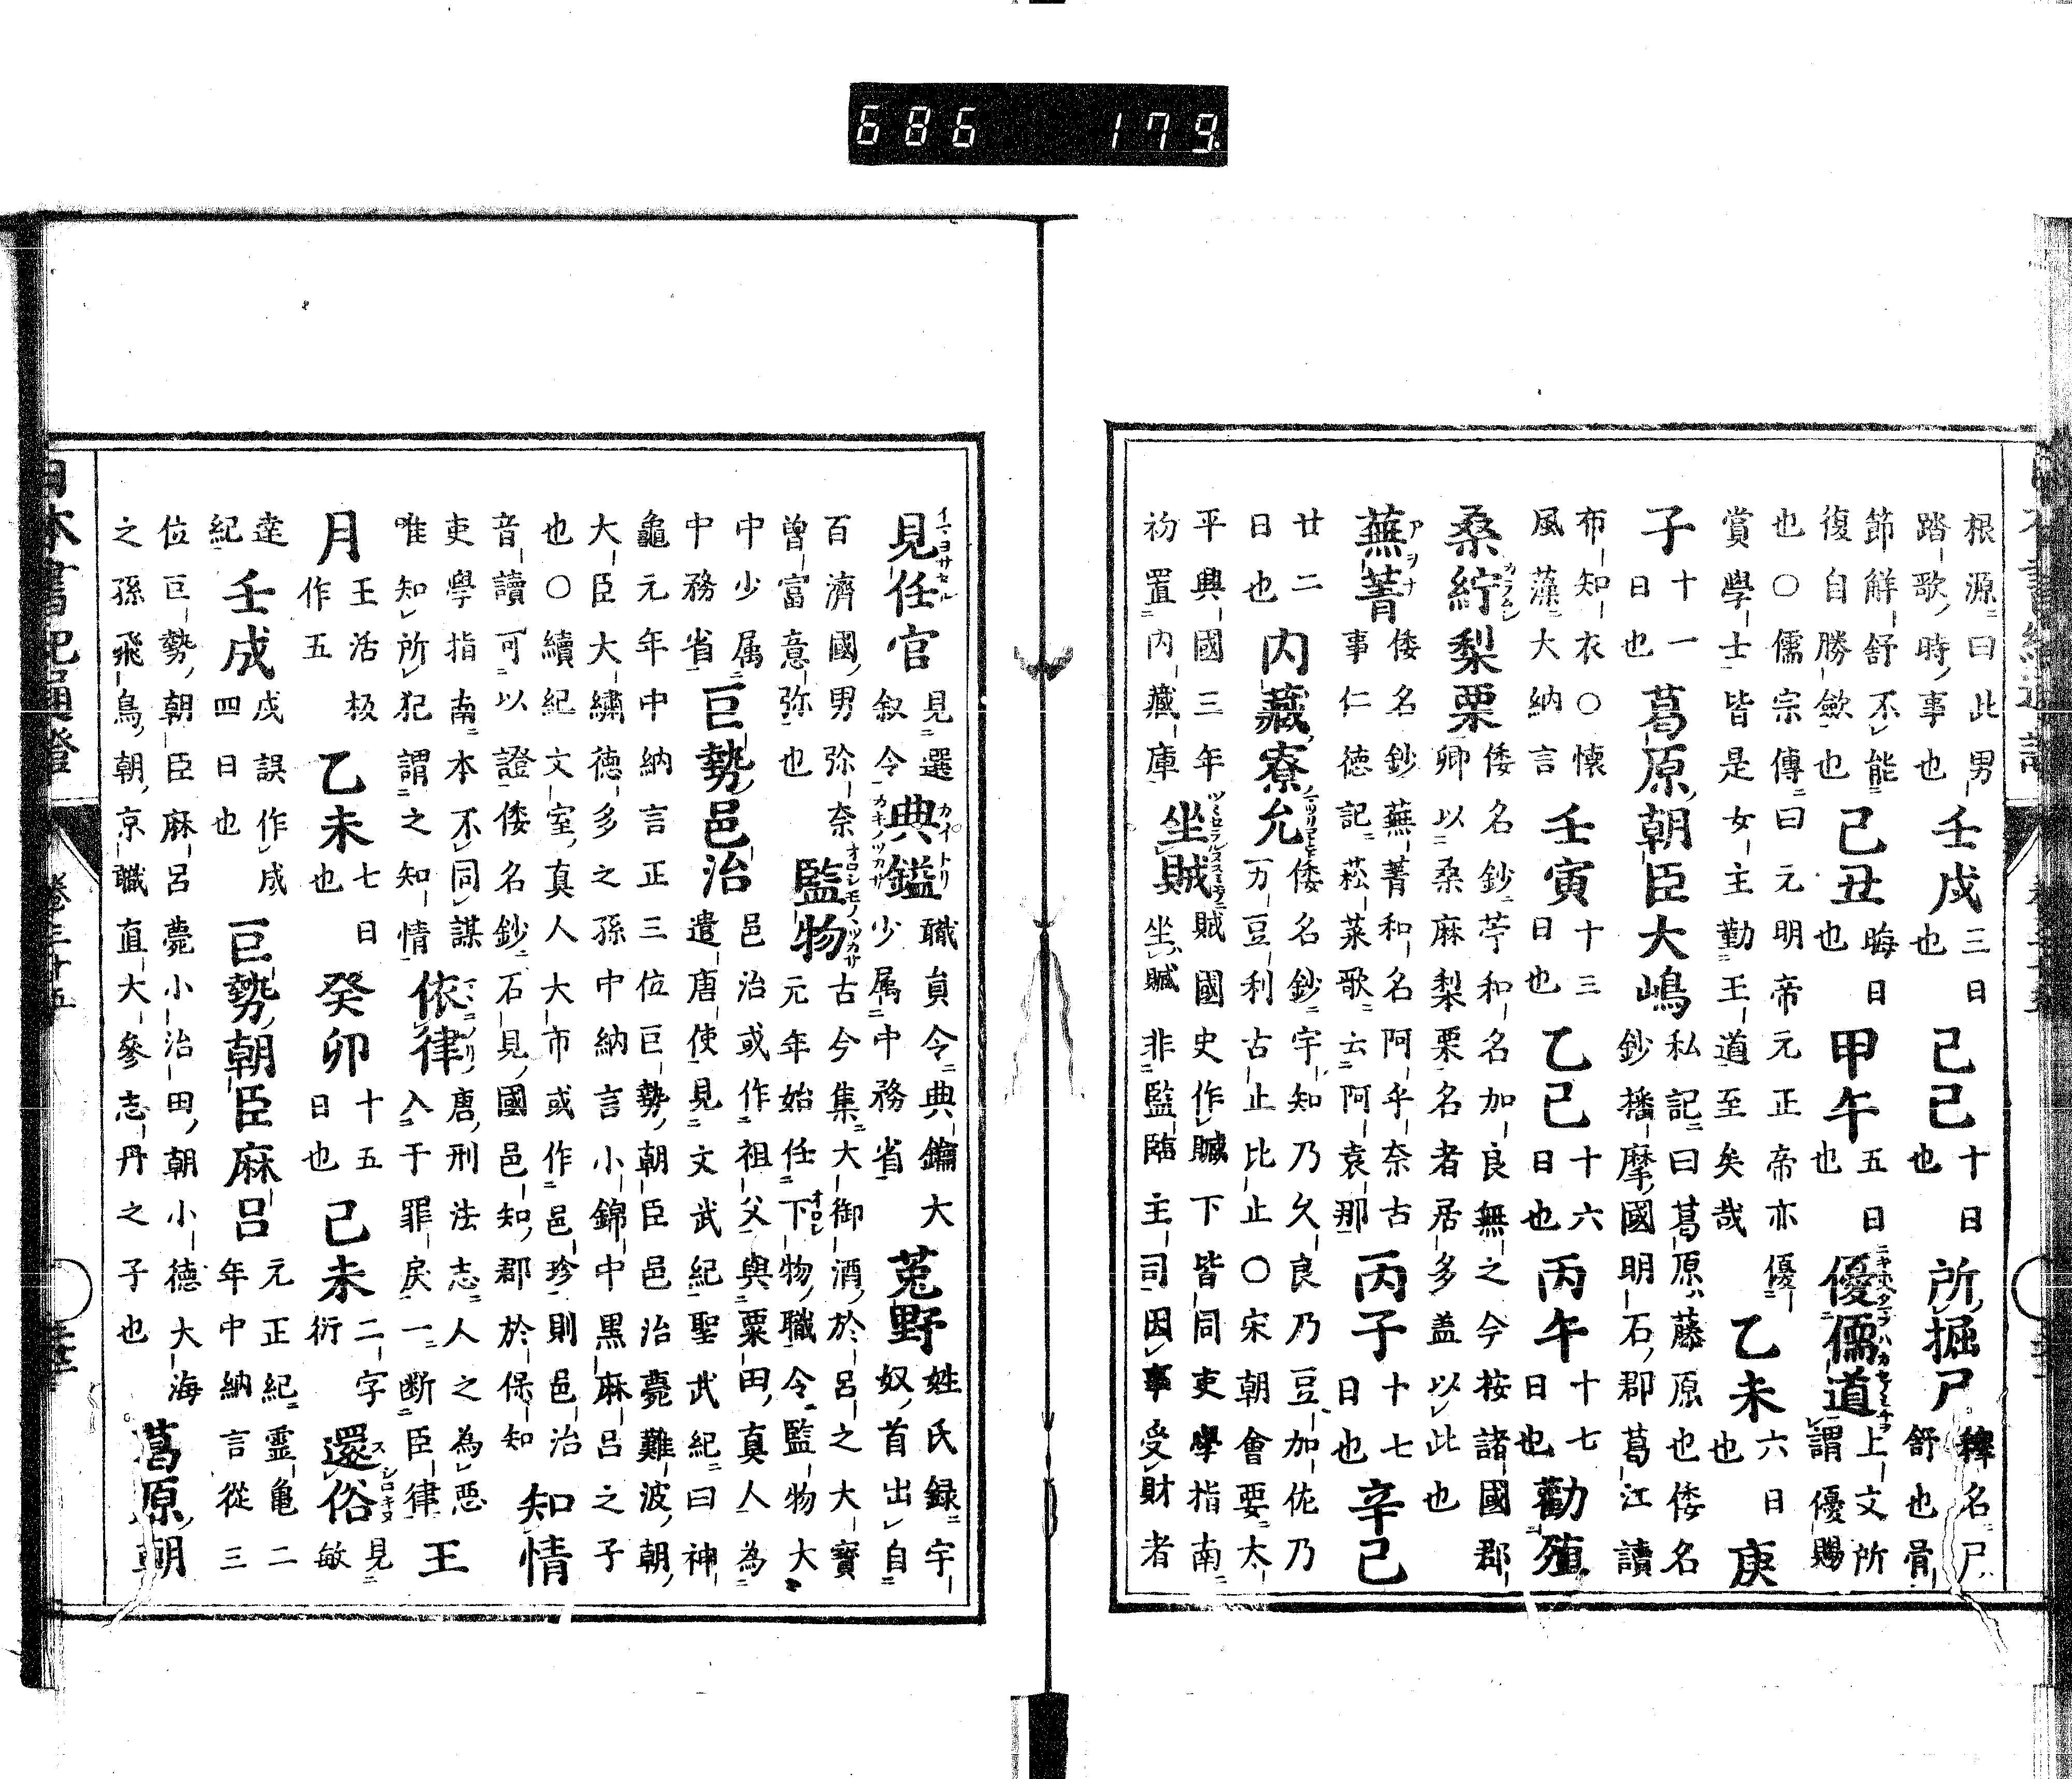 686 179
根源曰此男踏歌時事也 壬戌 三日也 己巳 十日也 所掘尸 釋名尸舒也骨
節解舒不能復自勝斂也 己丑 晦日也 甲午 五日也 優儒道 上文所謂優賜
也〇儒宗傳曰元明帝元正帝亦優賞學士皆是女主勤王道至矣哉 乙未 六日也 庚
子 十一日也 葛原朝臣大嶋 私記曰葛原藤原也倭名鈔播摩國明石郡葛江讀
布知衣〇懷風藻大納言 壬寅 十三日也 乙巳 十六日也 丙午 十七日也 勸殖
桑紵梨栗 倭名鈔苧和名加良無之今按諸國郡卿以桑麻梨栗名者居多盖以此也
蕪菁 倭名鈔蕪菁和名阿乎奈古事仁徳記菘菜歌云阿袁那 丙子 十七日也 辛巳
廿二日也 内藏寮允 倭名鈔宇知乃久良乃豆加佐乃万豆利古止比止〇宋朝會要太
平興國三年初置内藏庫 坐賊 賊國史作贓下皆同吏學指南坐贓非監臨主司因事受財者
見任官 見選叙令 典鎰 職員令典鑰大少属中務省 菟野 姓氏録宇奴首出自
百濟國男弥奈曾富意弥也 監物 古今集大御酒於呂之大寳元年始任下物職令監物大
中少属中務省 巨勢邑治 邑治或作祖父與粟田真人為遣唐使見文武紀聖武紀曰神
龜元年中納言正三位巨勢朝臣邑治薨難波朝大臣大繡徳多之孫中納言小錦中黒麻呂之子
也〇續紀文室真人大市或作邑珍則邑治音讀可以證倭名鈔石見國邑知郡於保知 知情
吏學指南本不同謀唯知所犯謂之知情 依律 唐刑法志人之為悪入于罪戻一断臣律 王
月 王活板作五 乙未 七日也 癸卯 十五日也 己未 二字衍 還俗 見敏
達紀 壬戍 戍誤作戌四日也 巨勢朝臣麻呂 元正紀霊亀二年中納言從三
位巨勢朝臣麻呂薨小治田朝小徳大海之孫飛鳥朝京職直大参志丹之子也 葛原朝
日本書紀通證 卷三十五